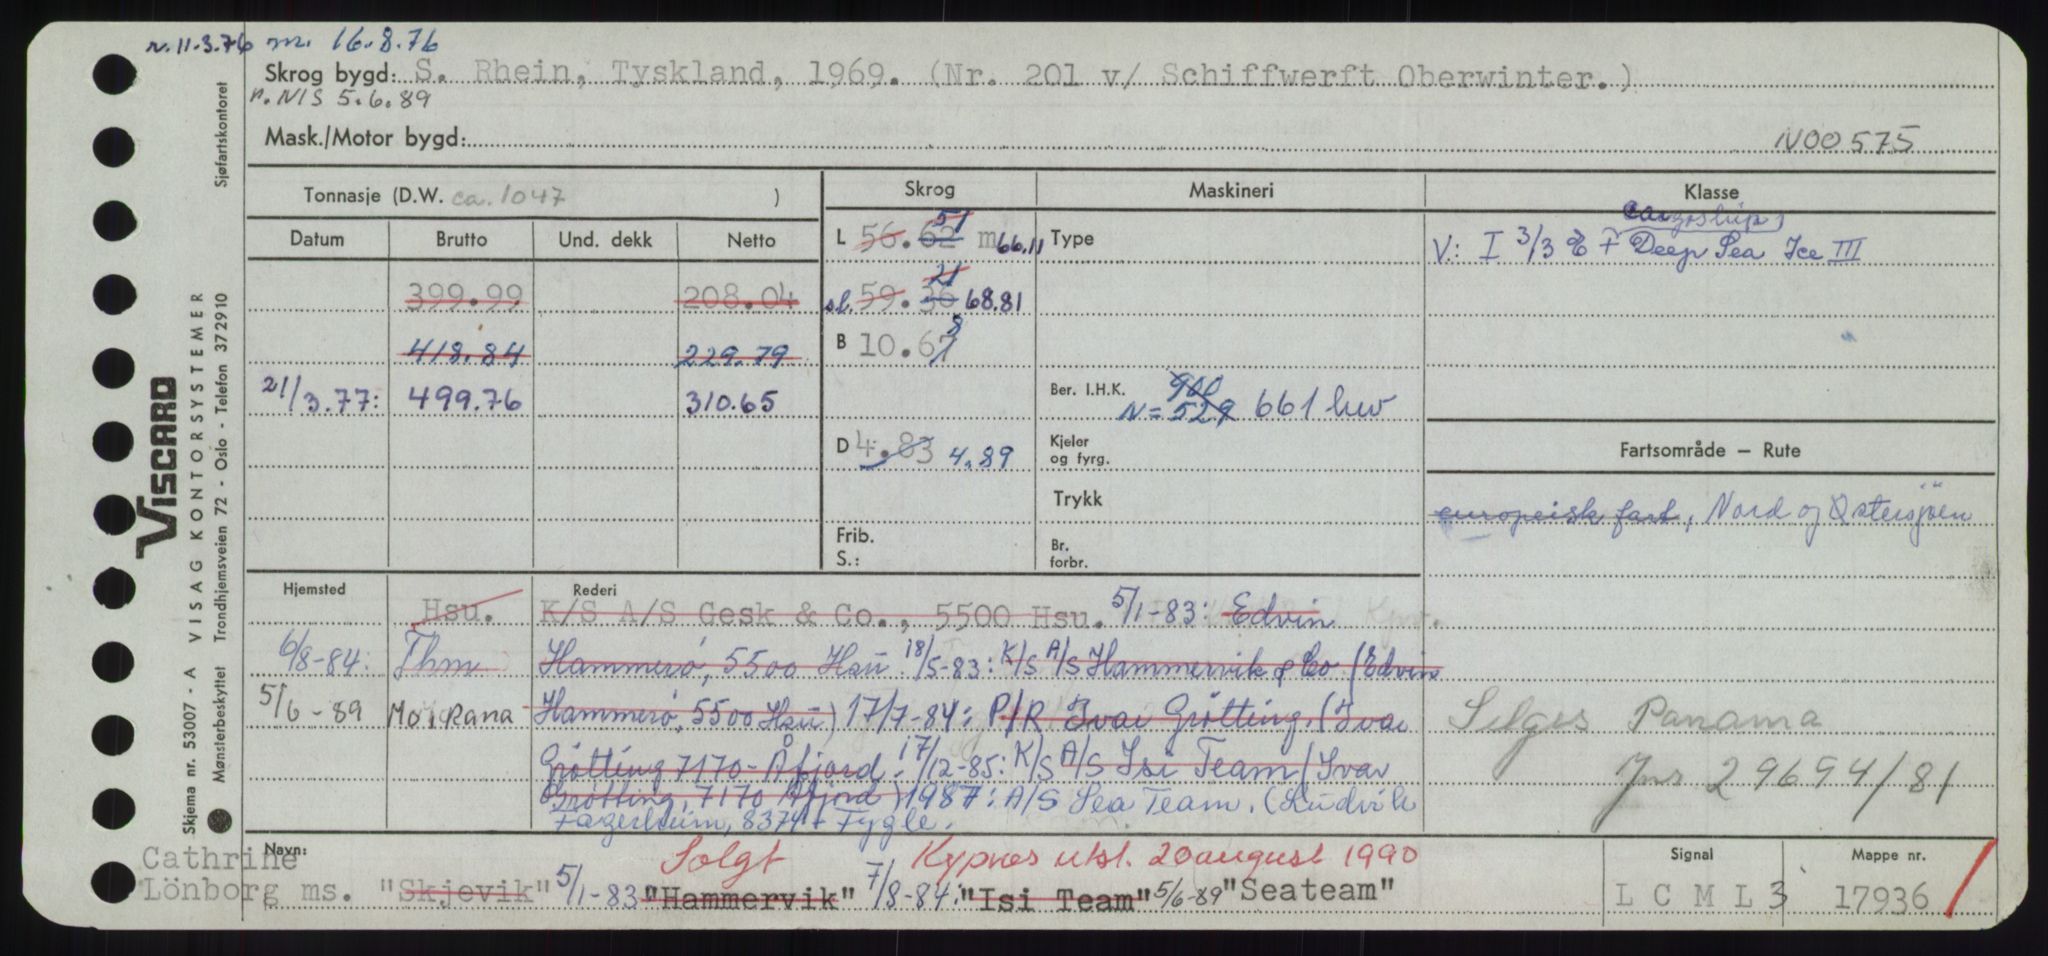 r. 11.3.76 m. 16.8.76
Skrog bygd: S. Rhein, Tyskland, 1969. (Nr. 201 v/ Schiffwerft Oberwinter.)
n. NIS 5.6.89
Mask./Motor bygd: N00575
Tonnasje (D.W. ca. 1047 )
Skrog Maskineri Klasse
Datum Brutto Und. dekk Netto
399.99 208.04
418.84 229.79
21/3.77: 499.76 310.65
L 56.62 51 m 66.11
sl. 59.36 21 68.81
B 10.67 8
D 4.83 4.89
Frib.
S.:
Type
Ber. I.H.K. 900
N = 529 661 hw
Kjeler
og fyrg.
Trykk
Br.
forbr.
Cargoship
V: I 3/3 E + Deep Sea Ice III
Fartsområde — Rute
europeisk fart, Nord og Østersjøen
Hjemsted Rederi
Hsu. K/S A/S Gesk & Co., 5500 Hsu. 5/1-83: Edvin
6/8-84: Thm Hammerö, 5500 Hsu. 18/5-83: K/S A/S Hammervik & Co (Edvin
5/6-89 Mo i Rana Hammerö, 5500 Hsu) 17/7-84: P/R Ivar Grötting. (Ivar
Grötting 7170 Åfjord. 17/12-85: K/S A/S Isi Team (Ivar
Grötting, 7170 Åfjord) 1987: A/S Sea Team. (Ludvik
Fagerheim, 8374 Fygle.
Selges Panama
Jnr 29694/81
Navn: Cathrine
Lönborg ms. "Skjevik" 5/1-83 "Hammervik" 7/8-84: "Isi Team" 5/6-89 "Seateam"
Solgt Kypnos utst. 20 august 1990
Signal
L C M L 3
Mappe nr.
17936
Skjema nr. 53007 - A VISAG KONTORSYSTEMER Sjøfartskontoret
VISCARD
Mønsterbeskyttet Trondhjemsveien 72 - Oslo - Telefon 372910